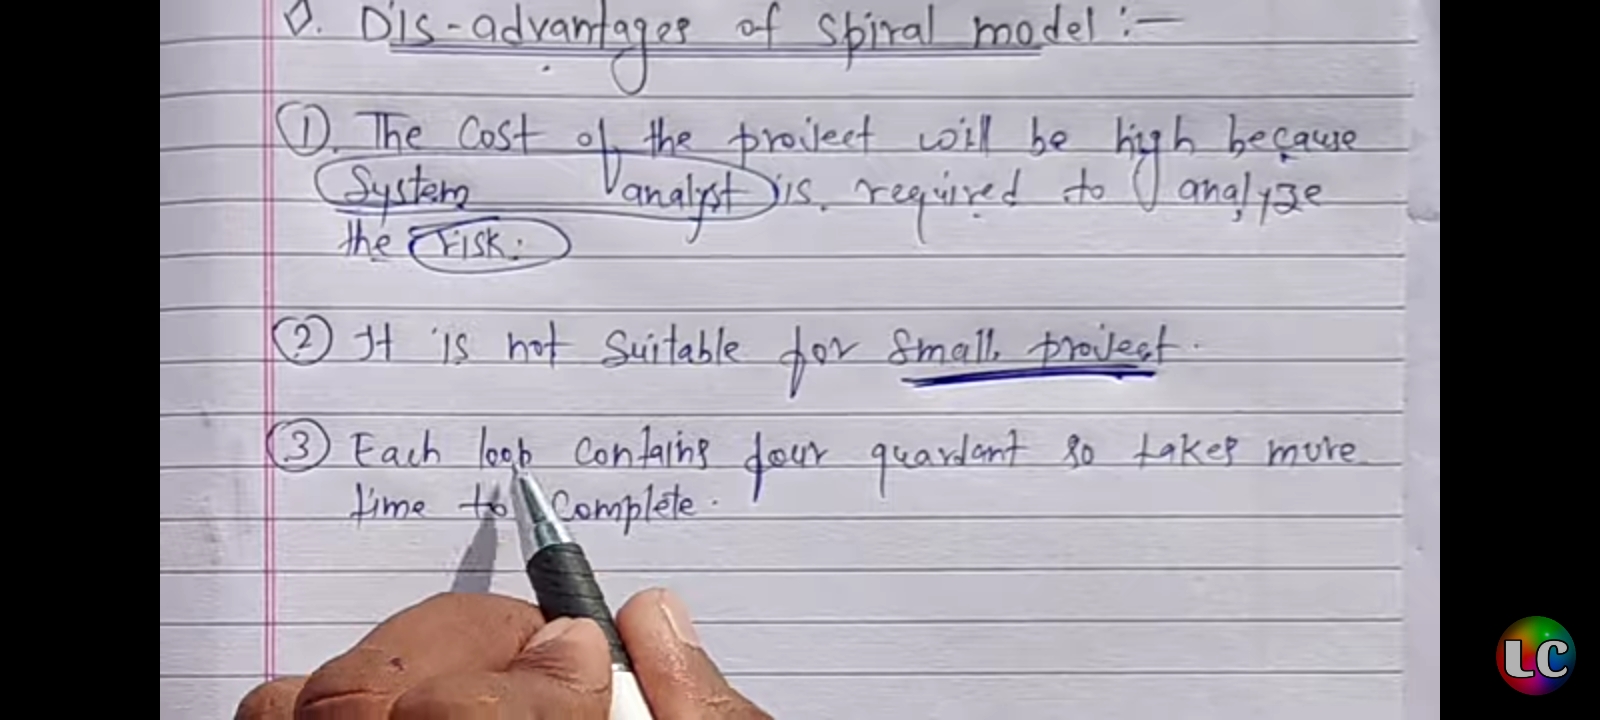 ◊. Dis-advantages of Spiral model :-
①. The Cost of the project will be high because
System analyst is required to analyze
the risk.
② It is not Suitable for Small project.
③ Each loop contains four quardant so takes more
time to complete.
LC